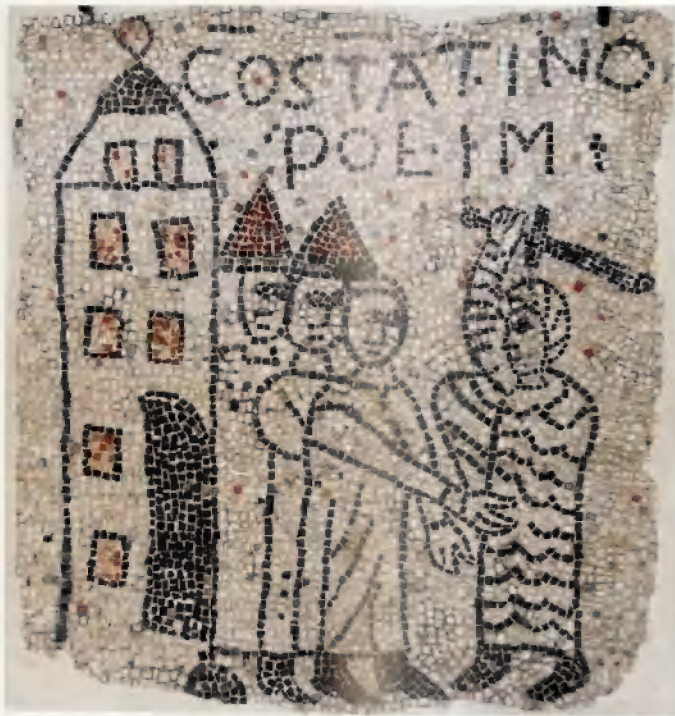 COSTATINO
POEIM